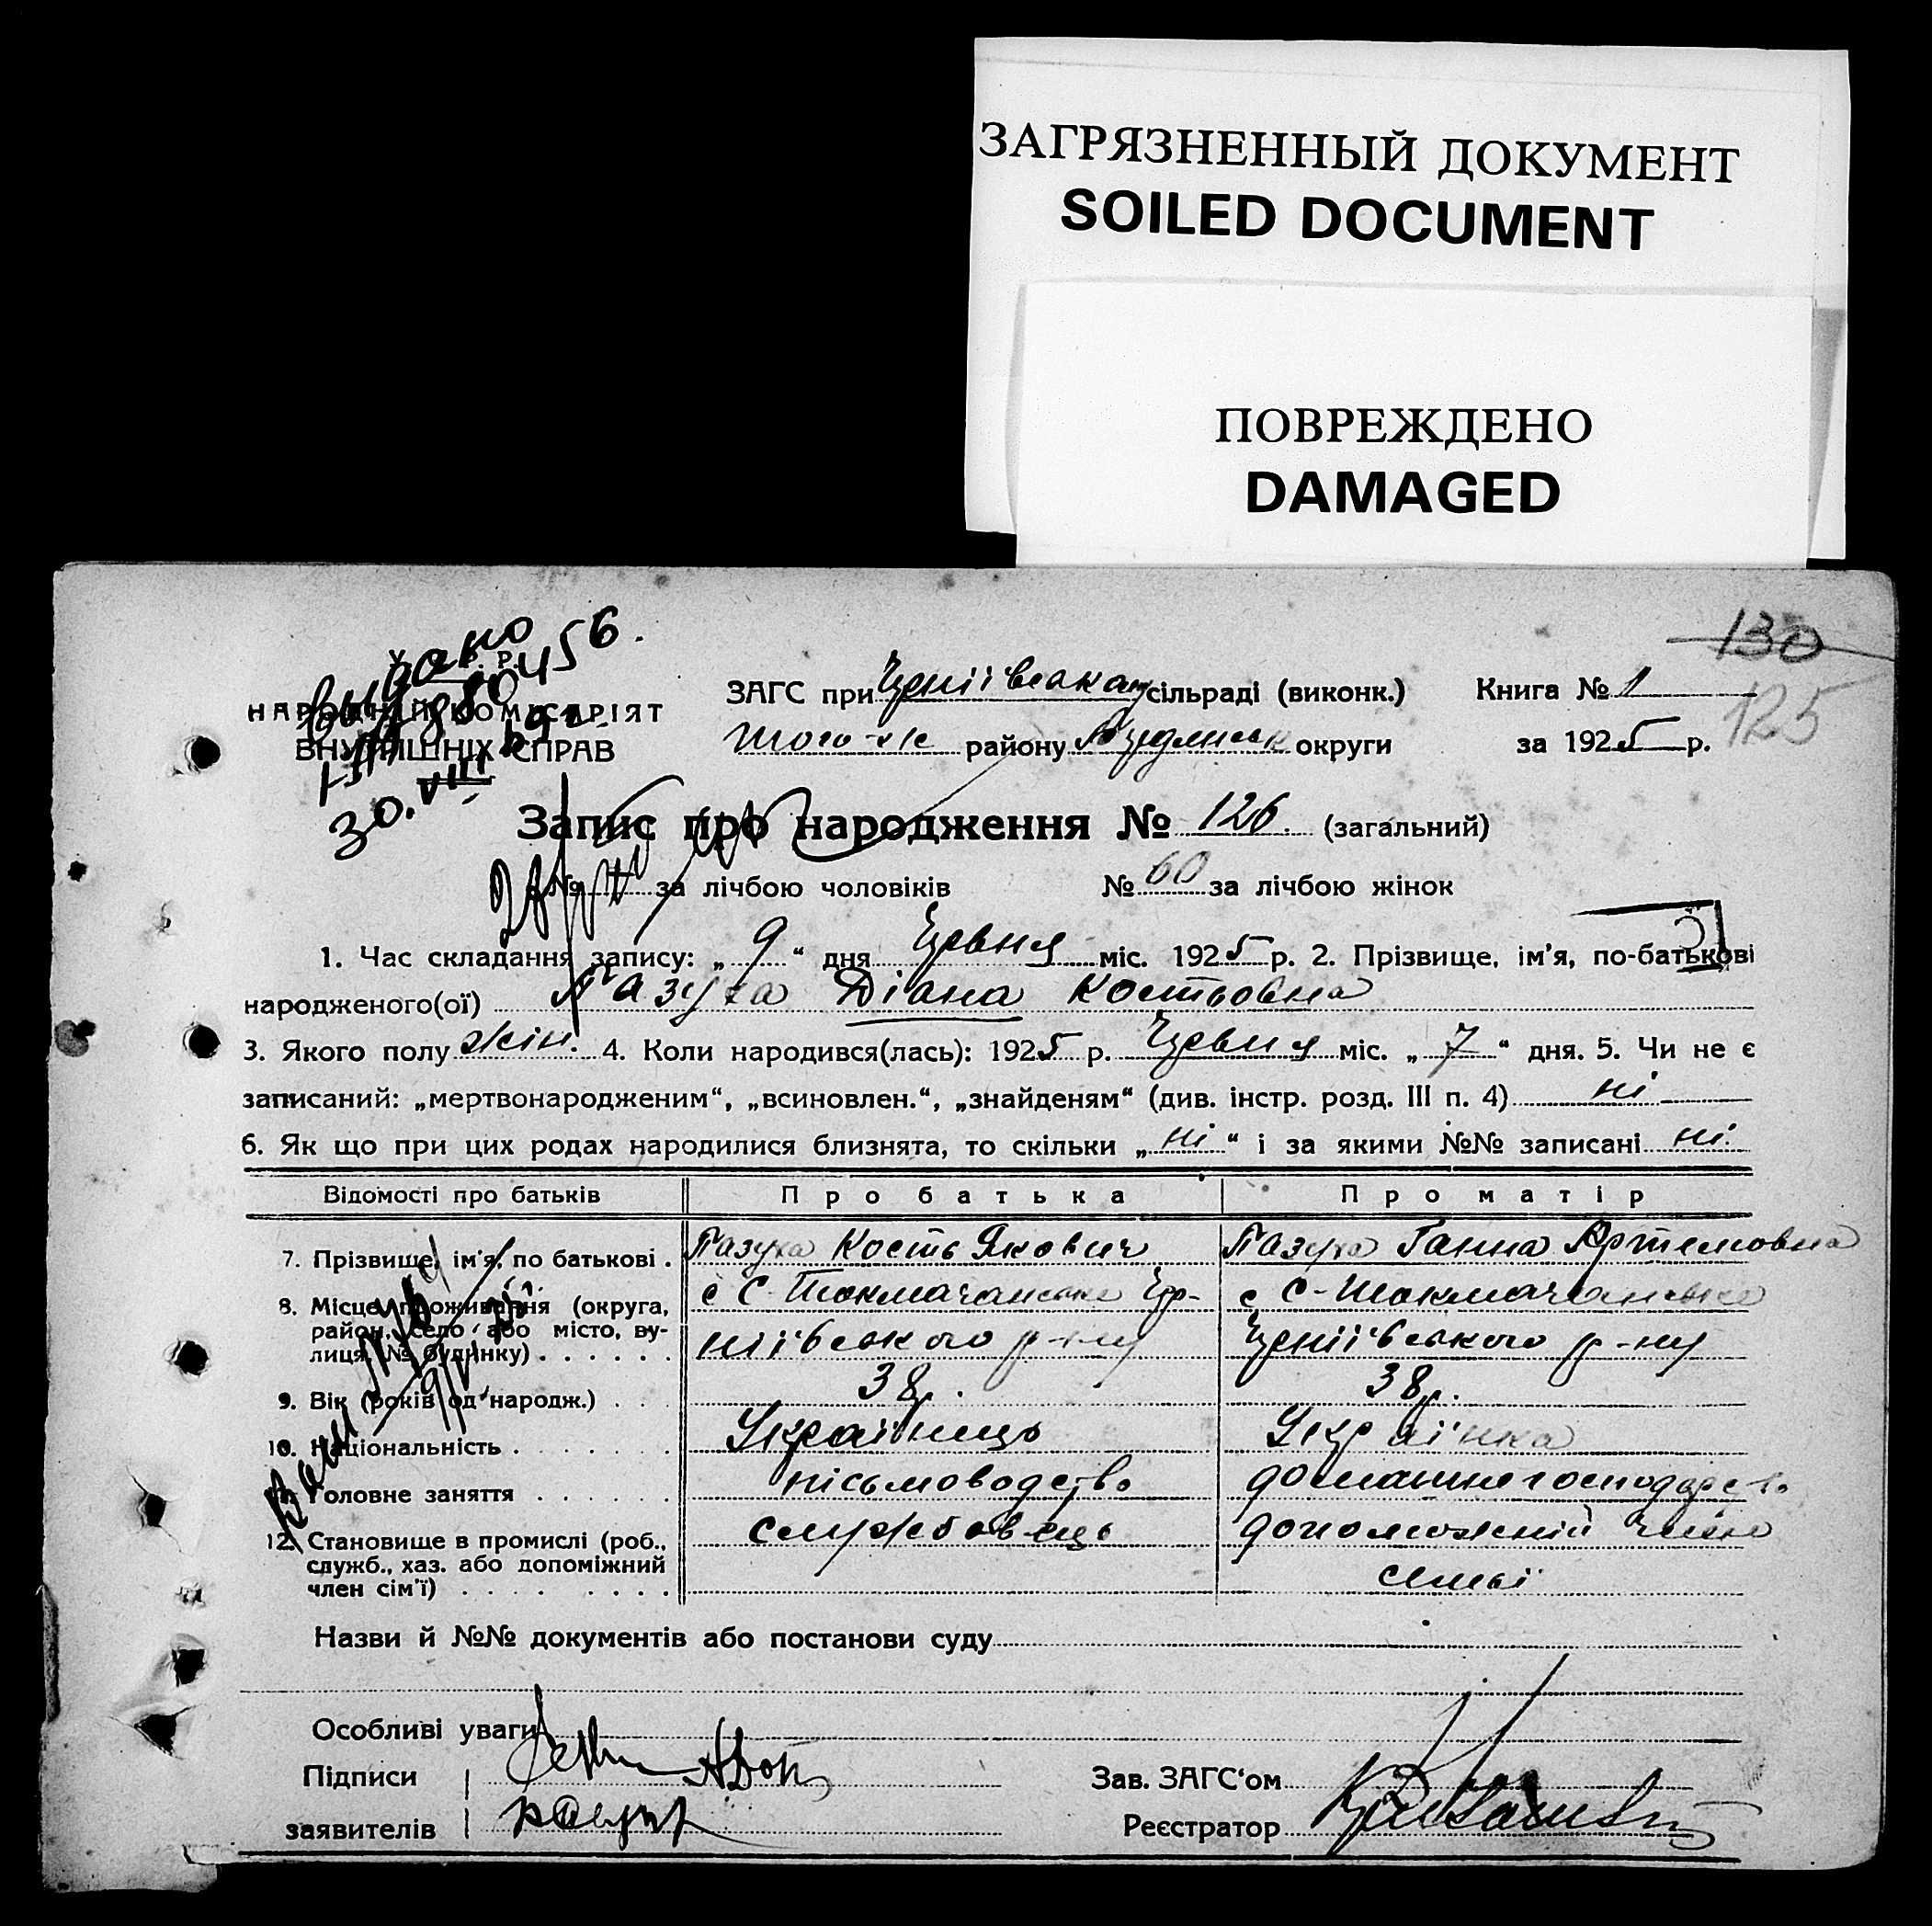 ЗАГРЯЗНЕННЫЙ ДОКУМЕНТ
SOILED DOCUMENT
ПОВРЕЖДЕНО
DAMAGED
130
125
Видано
456.
30. VIII
НАРОДНІЙ КОМІСАРІЯТ
ВНУТРІШНІХ СПРАВ
ЗАГС при сільраді (виконк.) Книга № 1
того-же району округи за 1925 р.
Запис про народження № 126. (загальний)
№ за лічбою чоловіків № 60 за лічбою жінок
1. Час складання запису: „ 9 “ дня Червня міс. 1925 р. 2. Прізвище, ім'я, по-батькові
народженого(ої) Пазуха Діана Костьовна
3. Якого полу жін. 4. Коли народився(лась): 1925 р. Червня міс. „ 7 “ дня. 5. Чи не є
записаний: „мертвонародженим“, „всиновлен.“, „знайденям“ (див. інстр. розд. III п. 4) ні
6. Як що при цих родах народилися близнята, то скільки „ ні “ і за якими №№ записані ні.
Відомості про батьків Про батька Про матір
7. Прізвище, ім'я, по батькові . Пазуха Кость Якович Пазуха Ганна Артемовна
8. Місце проживання (округа,
район, село або місто, ву-
лиця, № будинку) . . . . . . ніївського р-ну р-ну
9. Вік (років од народж.) . . . 38р. 38р.
10. Національність . . . . . . Українець Українка
11. Головне заняття . . . . . . пісьмоводство домашне господарство
12. Становище в промислі (роб.,
служб., хаз. або допоміжний
член сім'ї) . . . . . . . . службовець допоможній член
семьї
Назви й №№ документів або постанови суду
Особливі уваги
Підписи
заявителів
Зав. ЗАГС'ом
Реєстратор